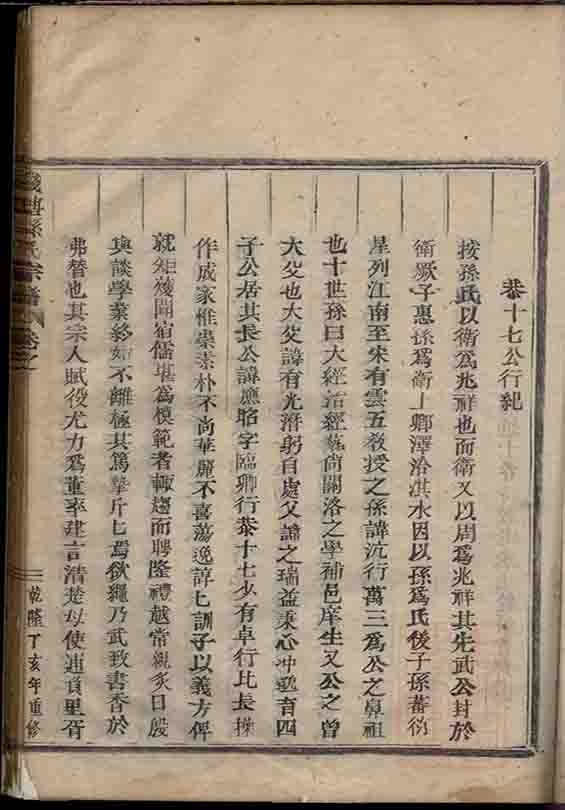 恭十七公行紀
按孫氏以衛為兆祥也而衛又以周為兆祥其先武公封於
衛厥子惠孫為衛上卿澤洽淇水因以孫為氏後子孫蕃衍
星列江南至宋有雲五教授之孫諱沆行萬三為公之鼻祖
也十世孫曰大經治經蓺尚關洛之學補邑庠生又公之曾
大父也大父諱有光潛躬自處父諱之瑞益秉心冲邈育四
子公居其長公諱應昭字臨卿行恭十七少有卓行比長操
作成家惟崇素朴不尚華靡不喜蕩逸諄匕訓子以義方俾
就矩矱聞宿儒堪為模範者輒趨而聘隆禮越常親炙日殷
與談學業終始不離極其篤摯斤匕焉欲繩乃武致書香於
弗替也其宗人賦役尤力為董率建言清楚毋使逋負里胥
孫氏宗譜
卷之
乾隆丁亥年重修